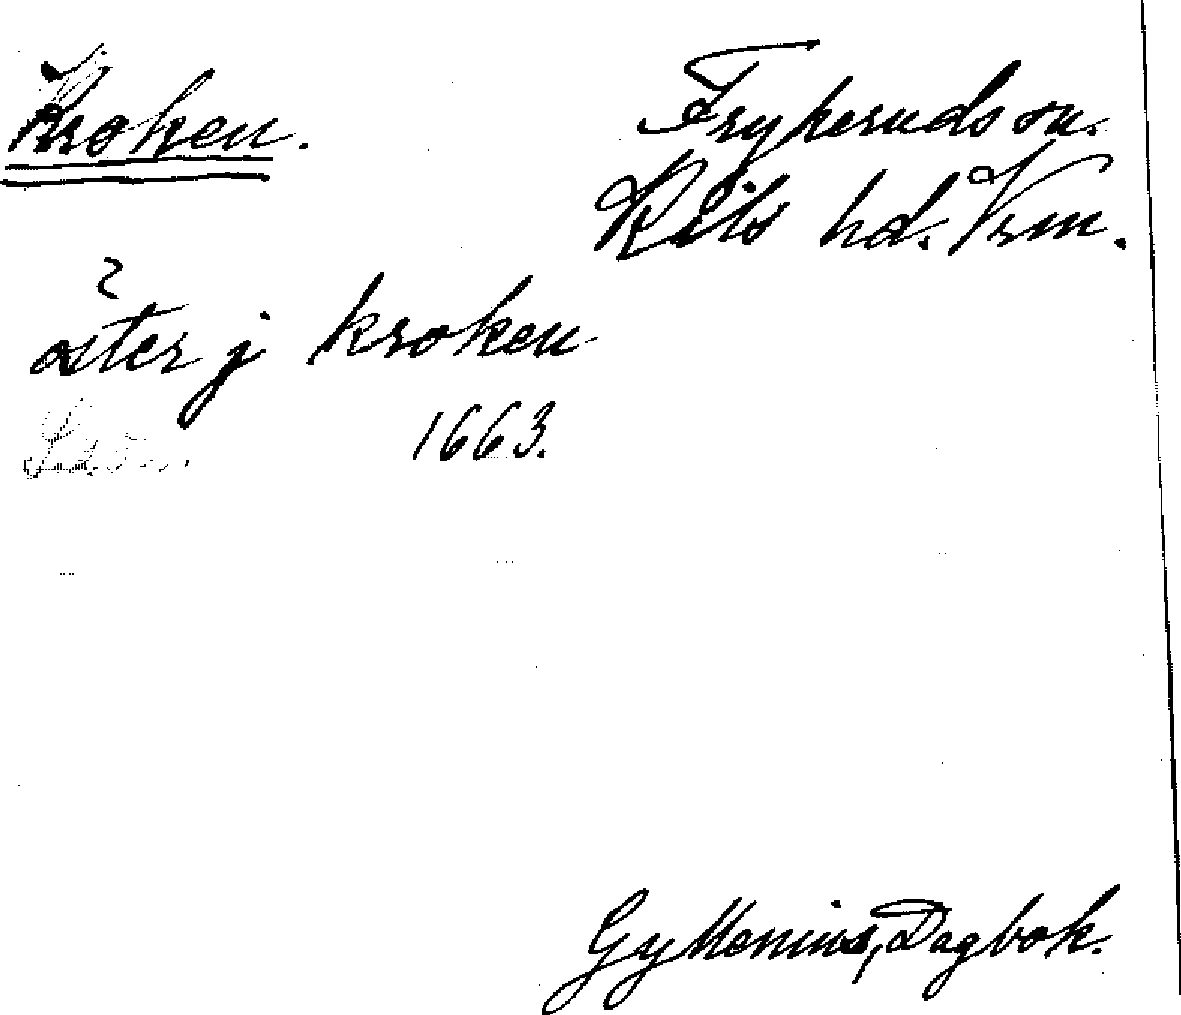 Kroken.
Frykeruds sn.
Kils hd. Vrm.
öster j kroken
1663.
Gyllenius, Dagbok.